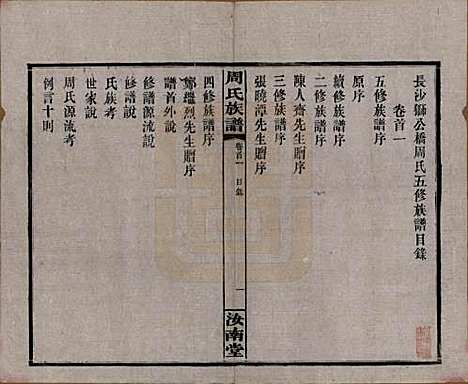 長沙獅公橋周氏五修族譜目錄
卷首一
五修族譜序
原序
續修族譜序
二修族譜序
陳人齋先生贈序
三修族譜序
張曉潭先生贈序
周氏族譜
卷首一 目錄
一
汝南堂
四修族譜序
鄭璢烈先生贈序
譜首外說
修譜源流說
修譜說
氏族考
世家說
周氏源流考
例言十則